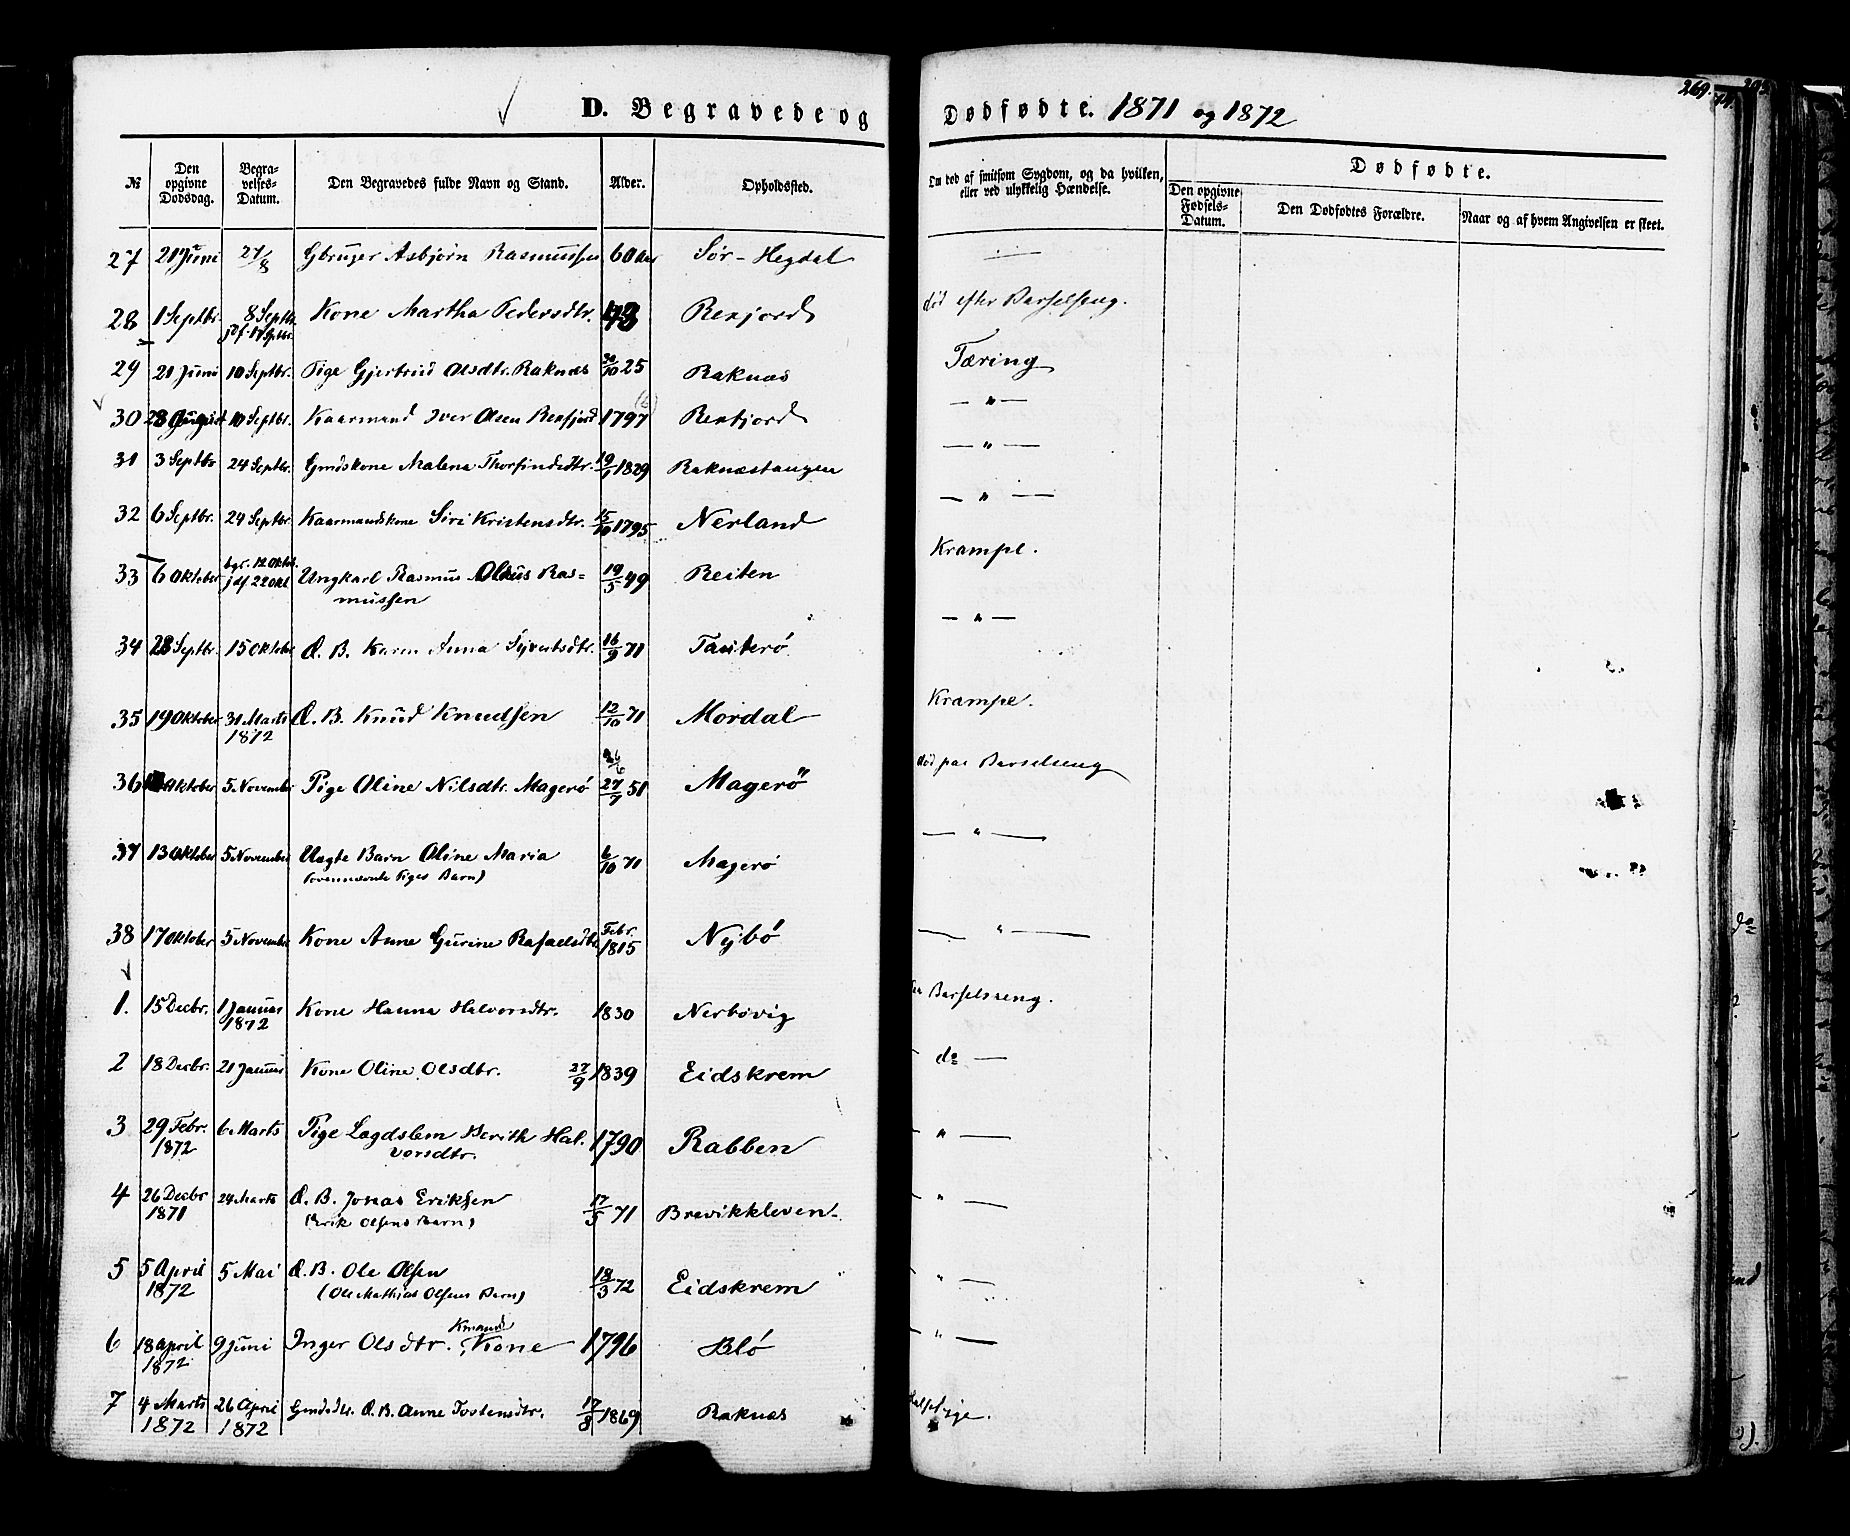 D. Begravede og Dødfødte. 1871 og 1872
269.
№ Den opgivne Dødsdag. Begravelses-Datum. Den Begravedes fulde Navn og Stand. Alder. Opholdsted. Om død af smitsom Sygdom, og da hvilken, eller ved ulykkelig Hændelse. Dødfødte.
Den opgivne Fødsels-Datum. Den Dødfødtes Forældre. Naar og af hvem Angivelsen er skeet.
27 21 Juni 27/8 Gbruger Asbjørn Rasmussen 60 Aar Sør-Hegdal —
28 1 Septbr. 8 Septbr. jdf. 17 Sptbr. Kone Martha Pedersdtr. 43 Rexjord død efter Barselseng.
29 21 Juni 10 Septbr. Pige Gjertrud Olsdtr. Raknæs 30/10 25 Raknæs Tæring
30 28 August 10 Septbr. Kaarmand Iver Olsen Rexfjord 1797 Rexfjord — " —
31 3 Septbr 24 Septbr. Gmdskone Malena Thorfindsdtr. 1829 Raknæstangen — " —
32 6 Septbr. 24 Septbr. Kaarmandskone Siri Kristensdtr. 15/10 1795 Nerland — " —
33 6 Oktober bgr. 12 Oktbr. jdf 22 Okt Ungkarl Rasmus Olaus Ras=
mussen 19/5 49 Reiten Krampe.
34 28 Septbr. 15 Oktober Æ. B. Karen Anna Syvertsdtr. 16/9 71 Tauterø — " —
35 19 Oktober 31 Marts 1872 Æ. B. Knud Knudsen 12/10 71 Mordal Krampe.
36 Oktober 5 November Pige Oline Nilsdtr. Magerø 27/7 51 Magerø død paa Barselseng
37 13 Oktober 5 November Uægte Barn Oline Maria
(ovennævnte Piges Barn) 6/10 71 Magerø — " —
38 17 Oktober 5 November Kone Anne Gurine Rafaelsdtr Febr. 1815 Nybø — " —
1. 15 Decbr. 1 Januar 1872 Kone Hanna Halvorsdtr. 1830 Nerbøvig Barselseng.
2 18 Decbr. 21 Januar Kone Oline Olsdtr. 27/9 1839 Eidskrem — do —
3 29 Febr. 1872 6 Marts Pige Lægdslem Berith Hal.
vorsdtr. 1790 Rabben — " —
4 26 Decbr 1871 24 Marts Æ. B. Jonas Eriksen
(Erik Olsens Barn) 17/5 71 Brevikkleven — " —
5 5 April 1872 5 Mai Æ. B. Ole Olsen
(Ole Mathias Olsens Barn) 18/3 72 Eidskrem — " —
6 18 April 1872 9 Juni Inger Olsdtr. Kmand, Kone 1796 Blø — " —
7 4 Marts 1872 26 April 1872 Gmds dtr. Æ. B. Anne Tostensdtr. 17/8 1869 Raknæs